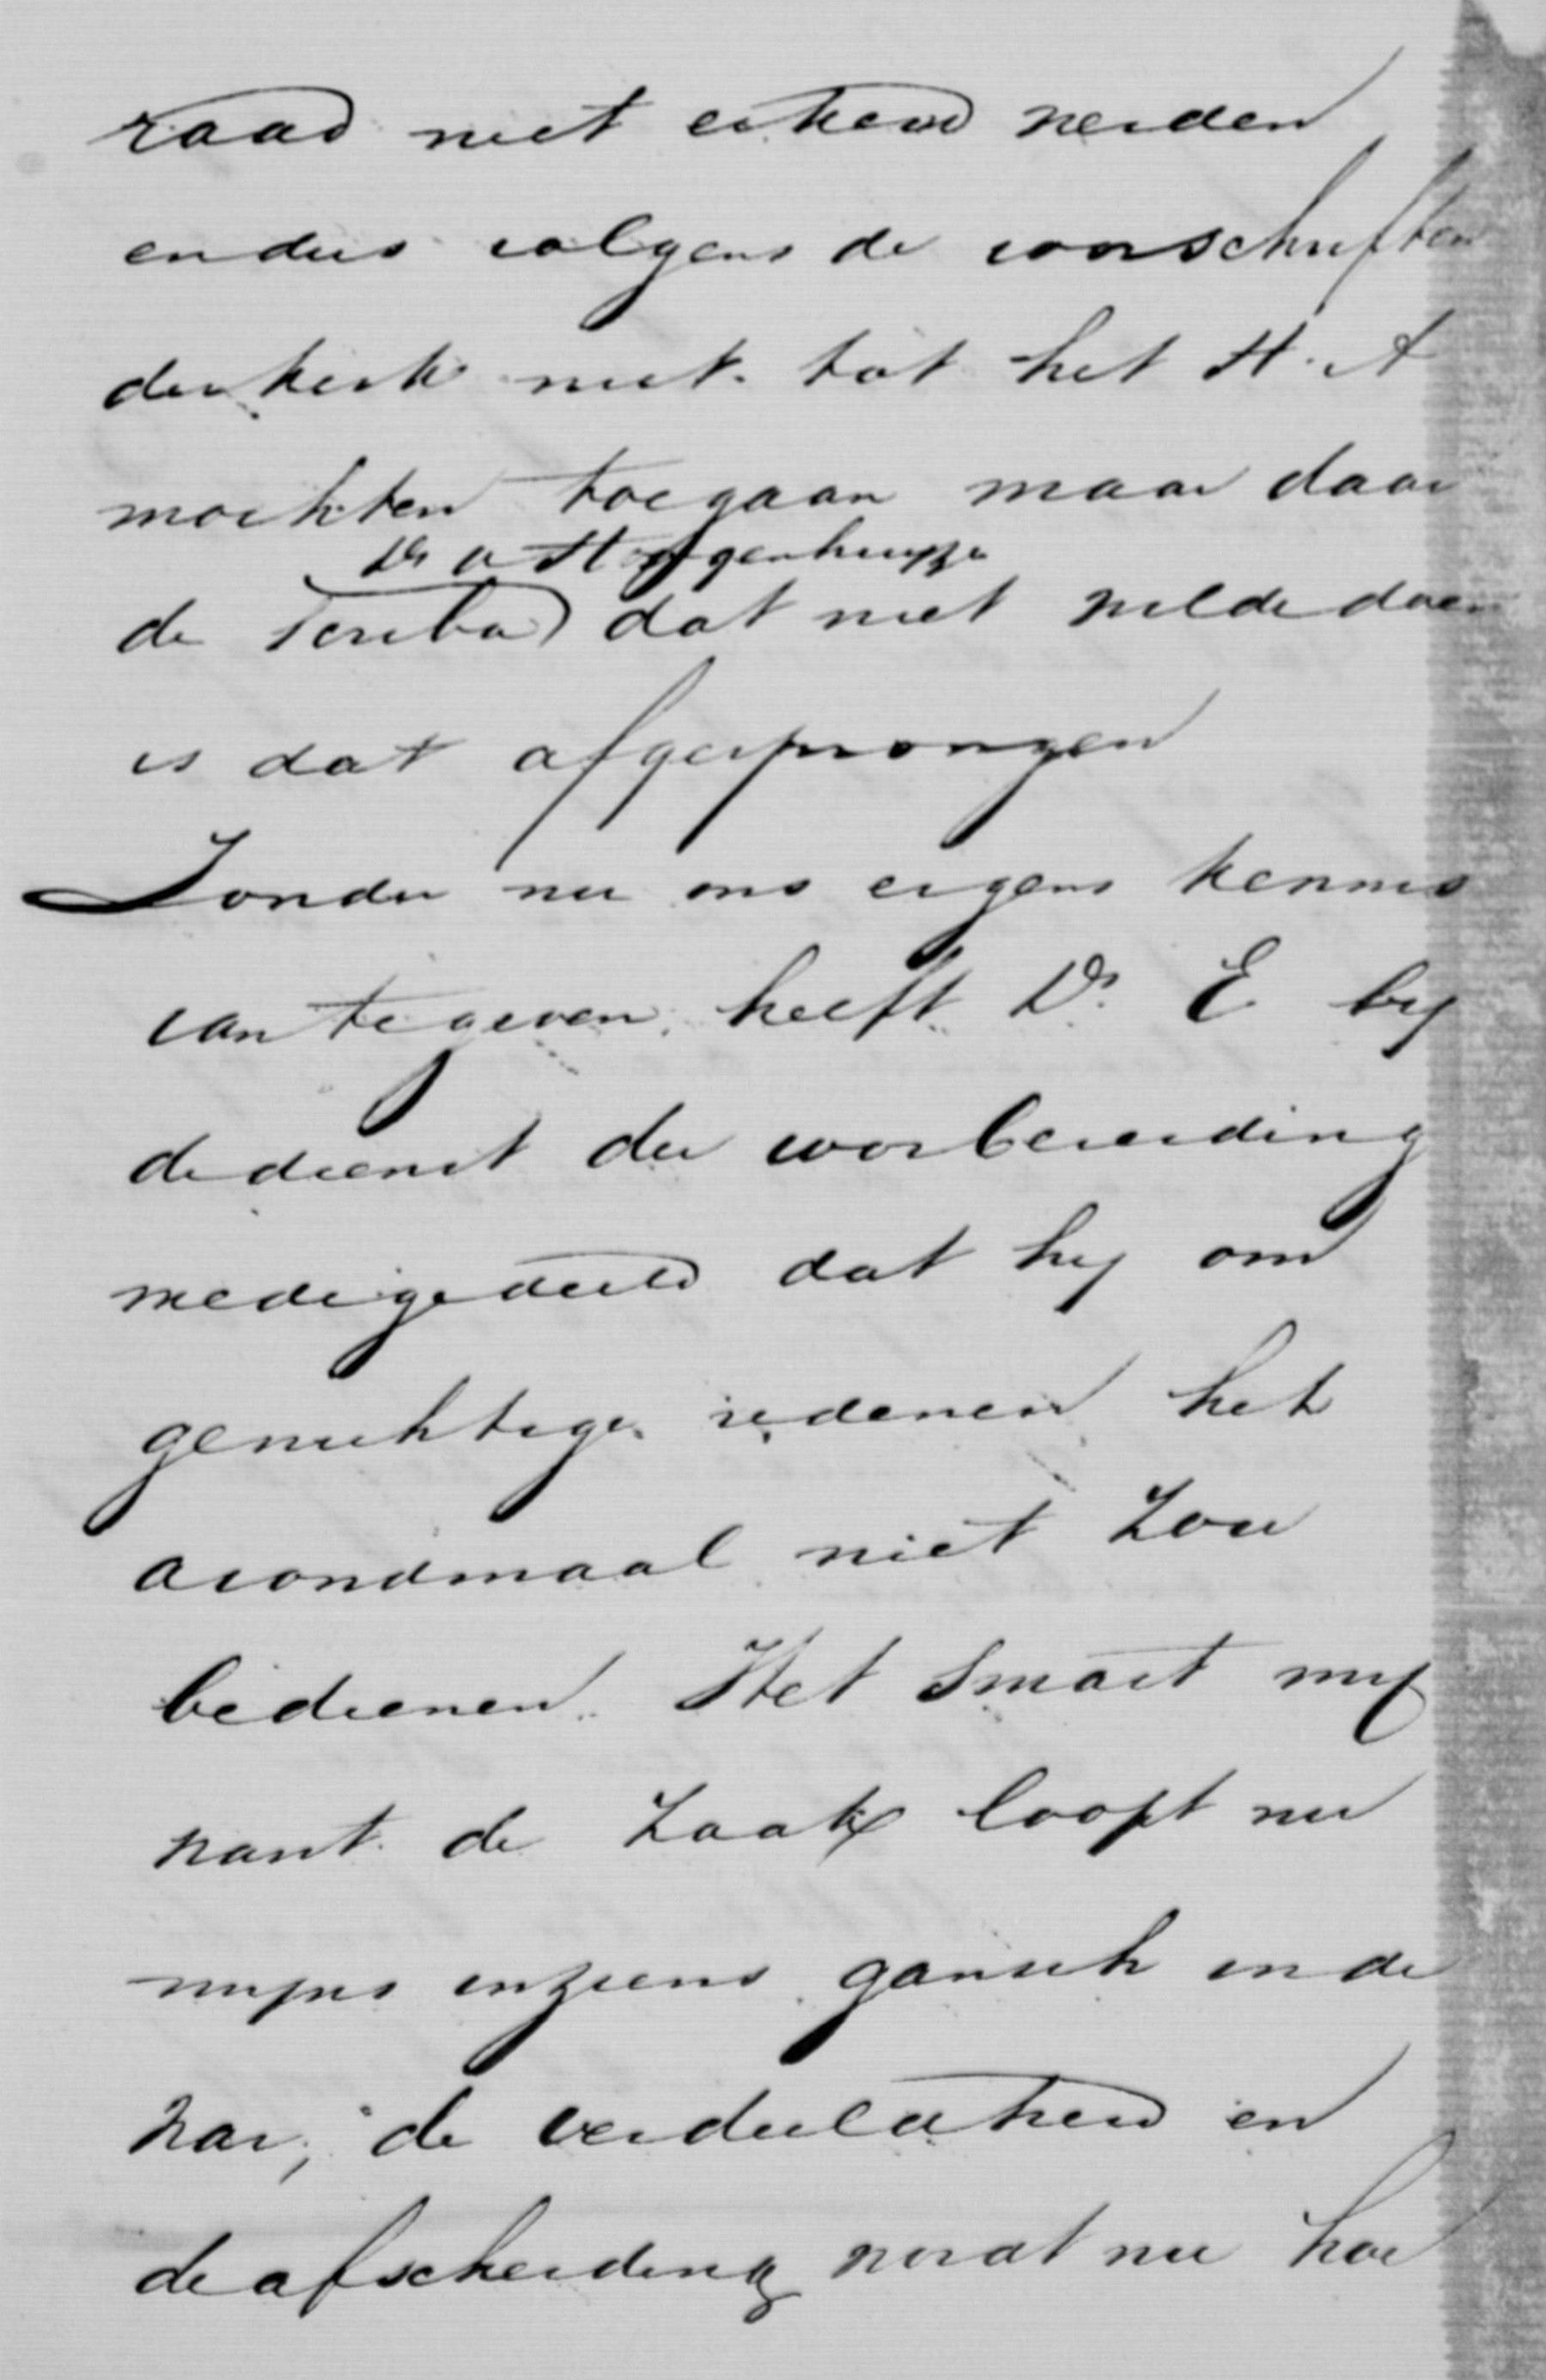 raad niet erkend werden
en dus volgens de voorschriften
der kerk niet tot het H. A
mochten toegaan maar daar
Ds v Hoogenhuyze
de Scriba dat niet wilde doen
is dat afgesprongen
Zonder nu ons ergens kennis
van te geven heeft Ds. E by
de dienst der voorbereiding
medegedeeld dat hy om
gewichtige redenen het
avondmaal niet zou
bedienen. Het smart my
want de zaak loopt nu
myns inziens gansch in de
war, de verdeeldheid en
de afscheiding wordt nu hoe